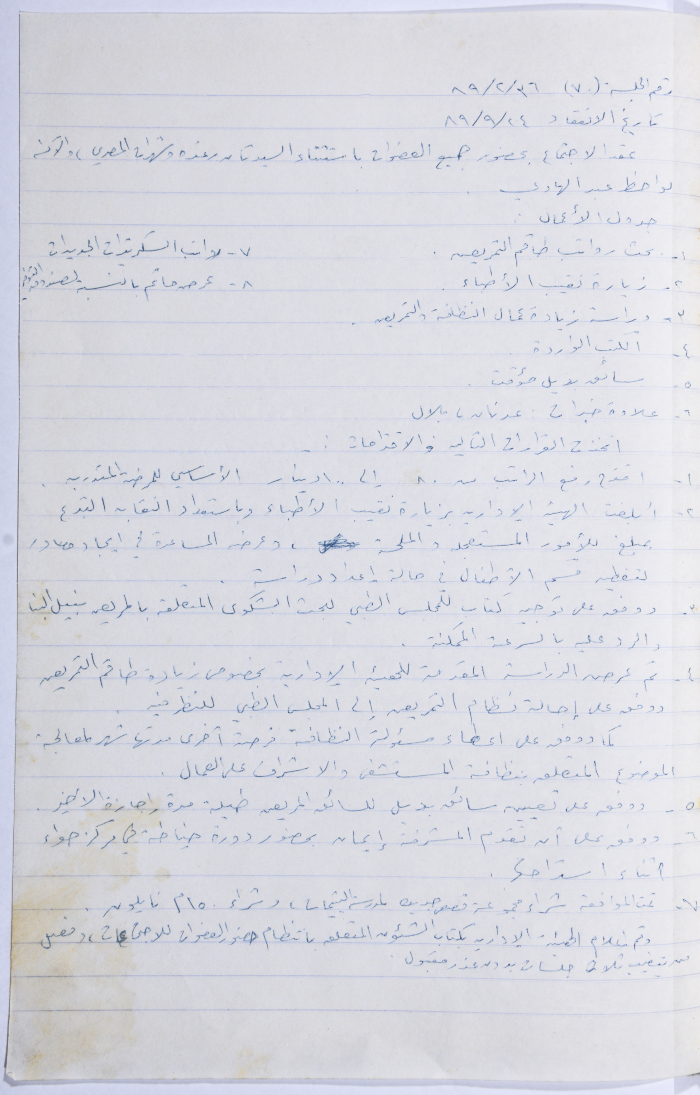 رقم الجلسة (٧٠) ٨٩/٢/٣٦
تاريخ الانعقاد ٨٩/٩/٢٤
عقد الاجتماع بحضور جميع العضوات باستثناء السيدتان رغده وشهرات المصري، والآنسة
لواحظ عبد الهادي .
جدول الأعمال :
١- بحث رواتب طاقم التمريض .
٢- زيارة نقيب الأطباء .
٣- دراسة زيادة عمال النظافة والتمريض .
٤- الكتب الواردة
٥- سائق بديل مؤقت .
٦- علاوة خبرات : عدنان، بلال
٧- رواتب السكرتيرات الجديدات
٨- عرض ما تم بالنسبة لصندوق التوفير
اتخذت القرارات التالية والاقتراحات :-
١- اقترح رفع الراتب من ٨٠ إلى ١٠٠ دينار الأساسي للممرضة المتدربة .
٢- أبلغت الهيئة الإدارية بزيارة نقيب الأطباء وباستعداد النقابة التبرع
بمبلغ للأمور المستعجلة والملحة ، وعرض المساعدة في ايجاد مصادر
لتغطية قسم الأطفال في حالة إعداد دراسة .
٣- ووفق على توجيه كتاب للمجلس الطبي لبحث الشكوى المتعلقة بالمريض نبيل البنا
والرد عليه بالسرعة الممكنة .
٤- تم عرض الدراسة المقدمة للهيئة الإدارية بخصوص زيادة طاقم التمريض
ووفق على إحالة نظام التمريض إلى المجلس الطبي للنظر فيه .
كما ووفق على اعطاء مسئولة النظافة فرصة أخرى مدتها شهر لمعالجة
الموضوع المتعلق بنظافة المستشفى والاشراف على العمال .
٥- ووفق على تعيين سائق بديل للسائق المريض طيلة مدة إجازة الأخير .
٦- ووفق على أن تقوم المشرفة إيمان بحضور دورة خياطة في مركز حواء
أثناء استراحتها .
٧- تمت الموافقة شراء مجموعة قصص جديدة لمدرسة اليتيمات، وشراء ١٥٠ م نايلون .
وتم إعلام الهيئة الإدارية بكتاب الشئون المتعلقة بانتظام حضور العضوات للاجتماعات، وفصل
من يتغيب ثلاث جلسات بدون عذر مقبول .